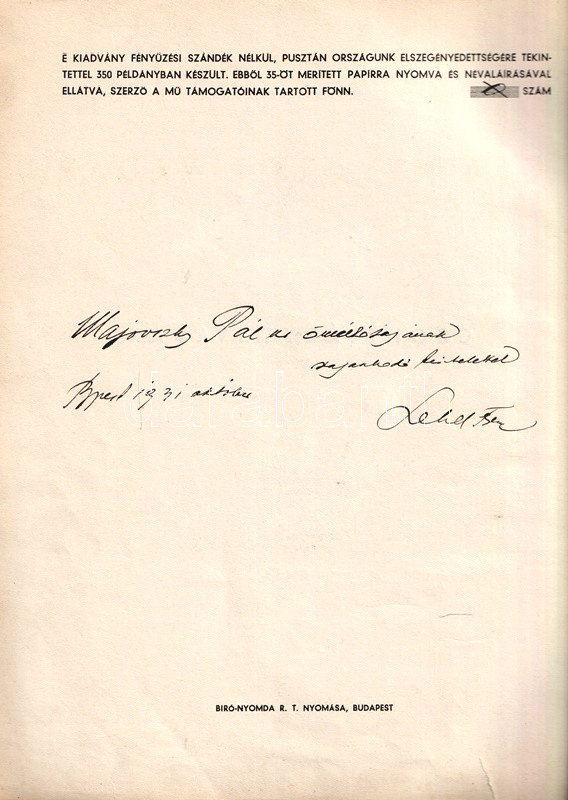 E KIADVÁNY FÉNYŰZÉSI SZÁNDÉK NÉLKÜL, PUSZTÁN ORSZÁGUNK ELSZEGÉNYEDETTSÉGÉRE TEKIN-
TETTEL 350 PÉLDÁNYBAN KÉSZÜLT. EBBŐL 35-ÖT MERÍTETT PAPÍRRA NYOMVA ÉS NÉVALÁÍRÁSÁVAL
ELLÁTVA, SZERZŐ A MŰ TÁMOGATÓINAK TARTOTT FÖNN. SZÁM
Majovszky Pál úr őméltóságának
Bpest 1931 október
BIRÓ-NYOMDA R. T. NYOMÁSA, BUDAPEST